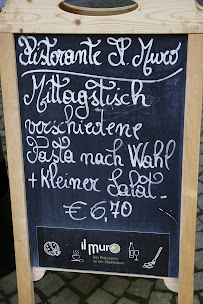 Ristorante Il Muro
Mittagstisch
verschiedene
Pasta nach Wahl
+ kleiner Salat -
€ 6,70
il muro
Das Ristorante
an der Stadtmauer